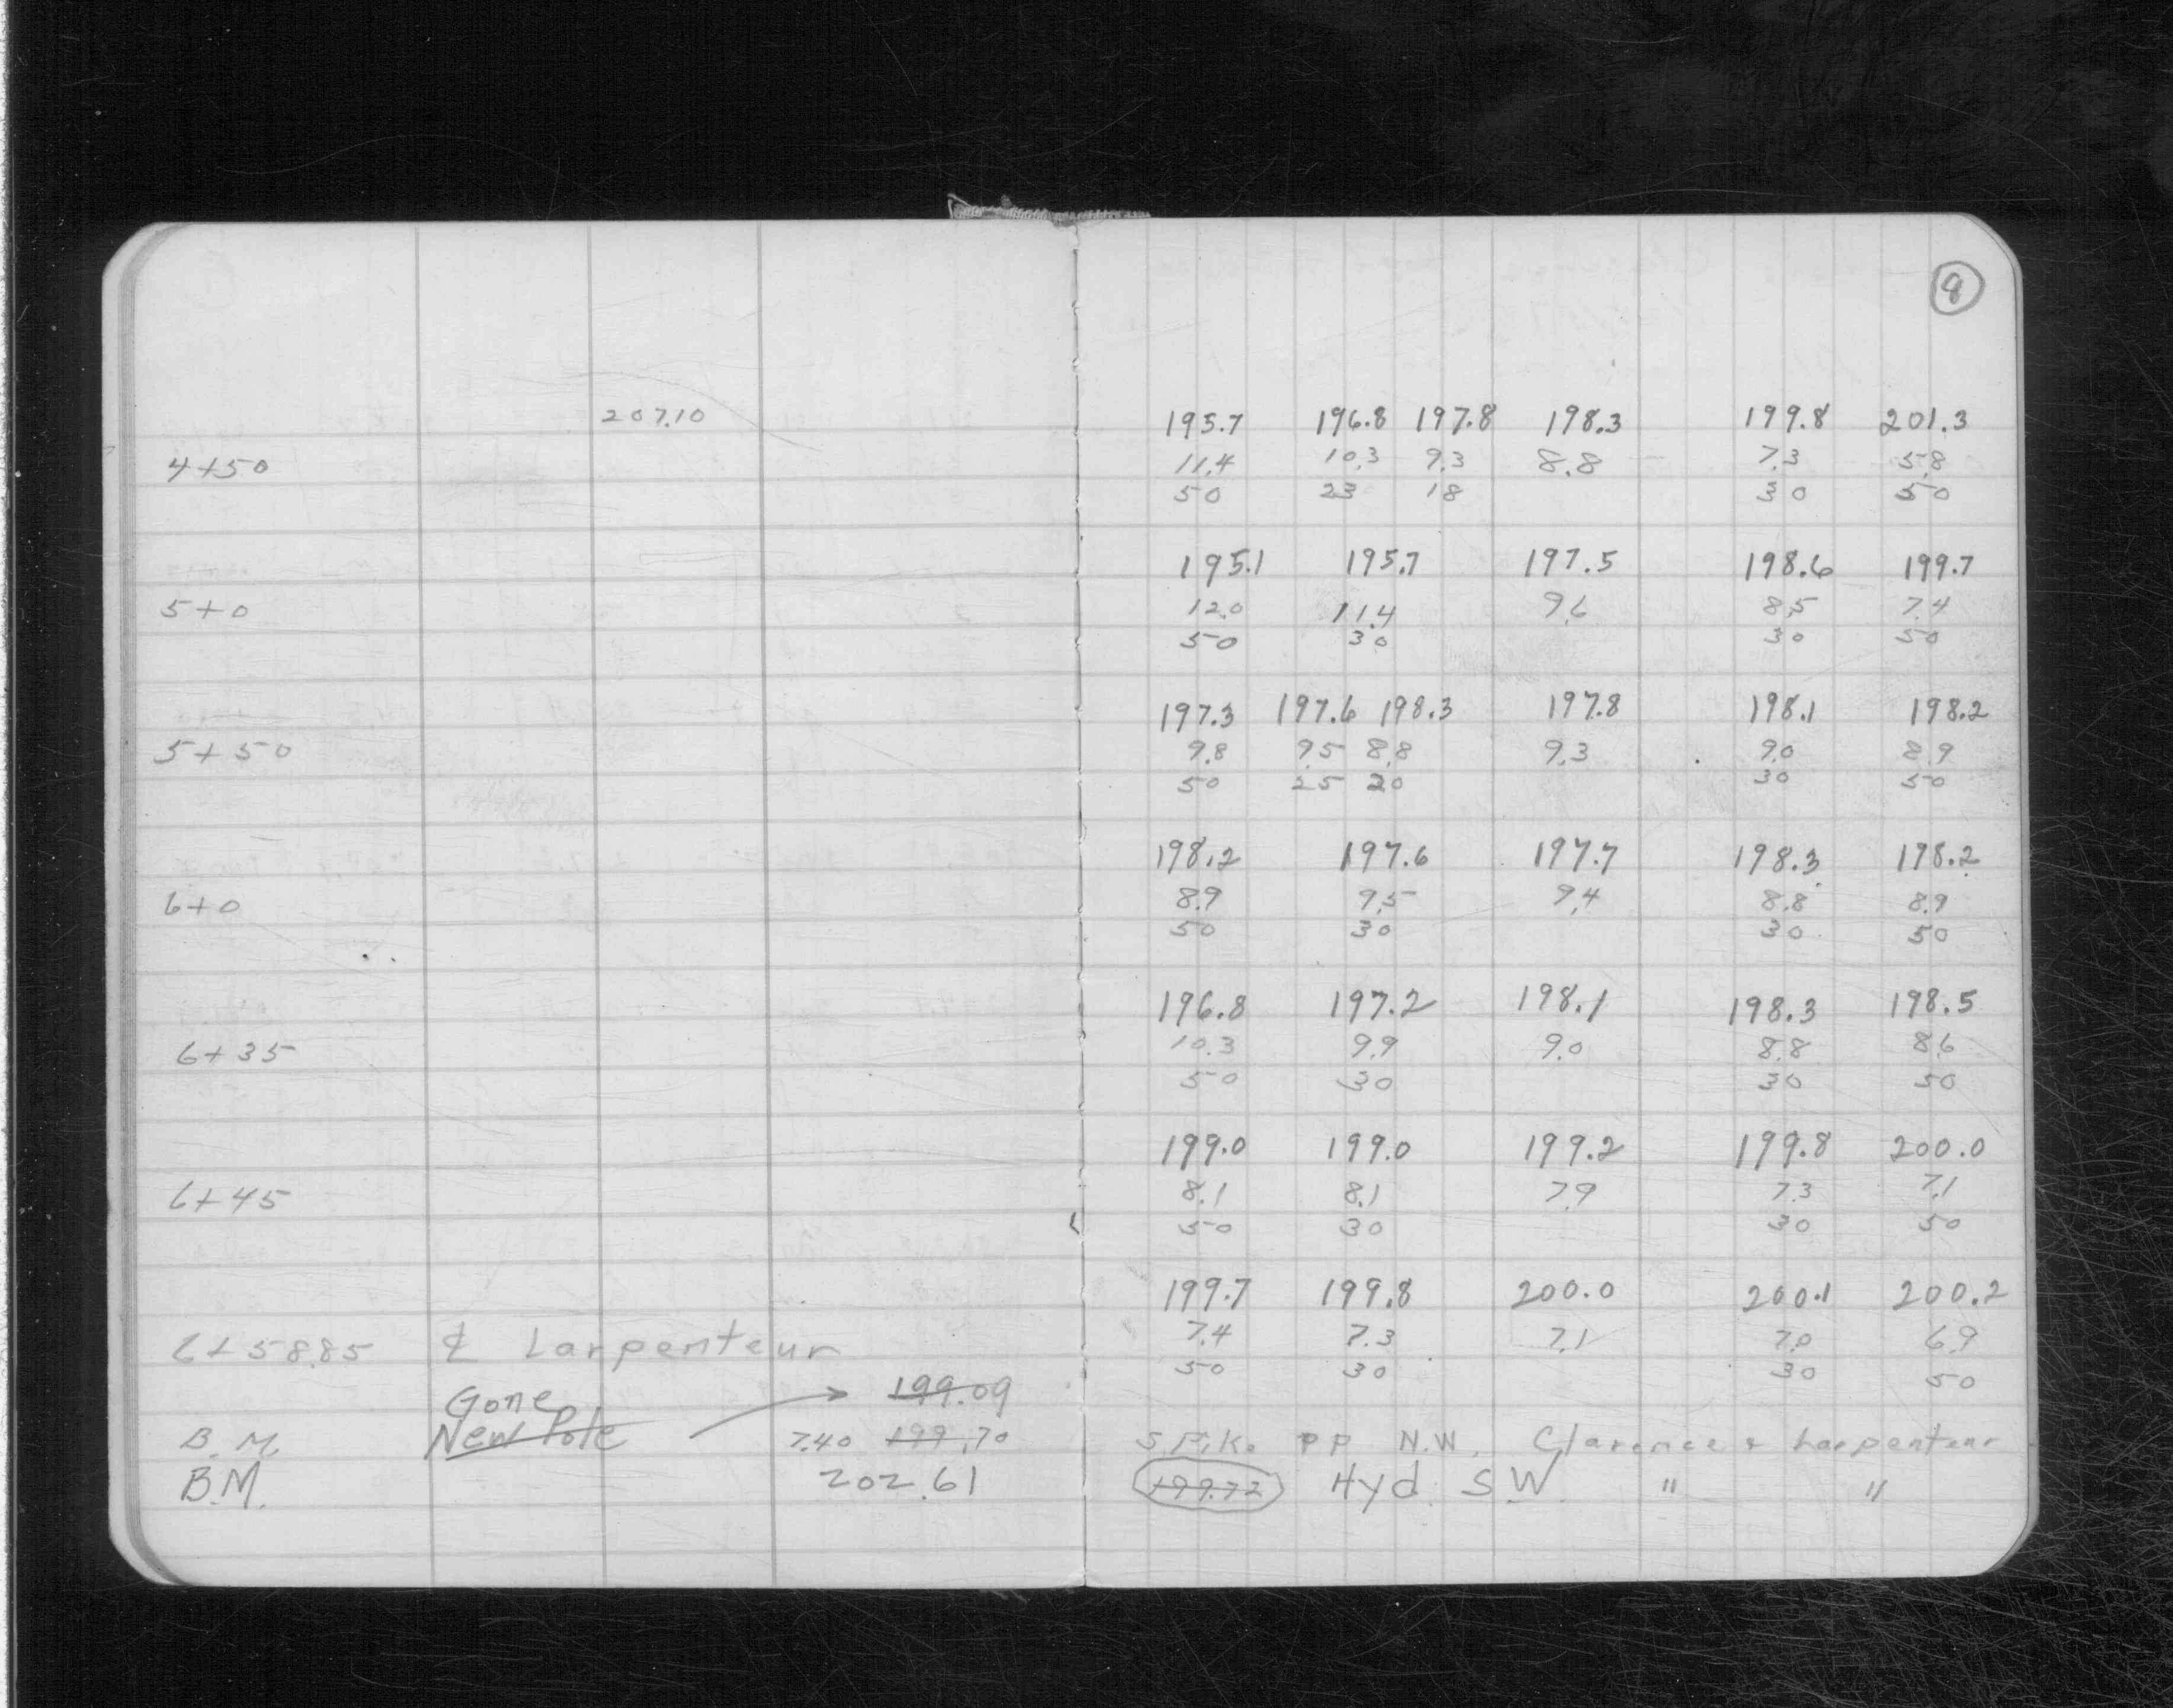 8
207.10 195.7 196.8 197.8 198.3 199.8 201.3
4+50 11.4 10.3 9.3 8.8 7.3 5.8
50 23 18 30 50
195.1 195.7 197.5 198.6 199.7
5+0 12.0 11.4 9.6 8.5 7.4
50 30 30 50
197.3 197.6 198.3 197.8 198.1 198.2
5+50 9.8 9.5 8.8 9.3 9.0 8.9
50 25 20 30 50
198.2 197.6 197.7 198.3 198.2
6+0 8.9 9.5 9.4 8.8 8.9
50 30 30 50
196.8 197.2 198.1 198.3 198.5
6+35 10.3 9.9 9.0 8.8 8.6
50 30 30 50
199.0 199.0 199.2 199.8 200.0
6+45 8.1 8.1 7.9 7.3 7.1
50 30 30 50
199.7 199.8 200.0 200.1 200.2
6+58.85 ℄ Larpenteur 7.4 7.3 7.1 7.0 6.9
50 30 30 50
Gone → 199.09
B.M. New Pole 7.40 199.70 S.P.K. PP N.W. Clarence & Larpenteur
B.M. 202.61 199.72 Hyd. S.W. " "